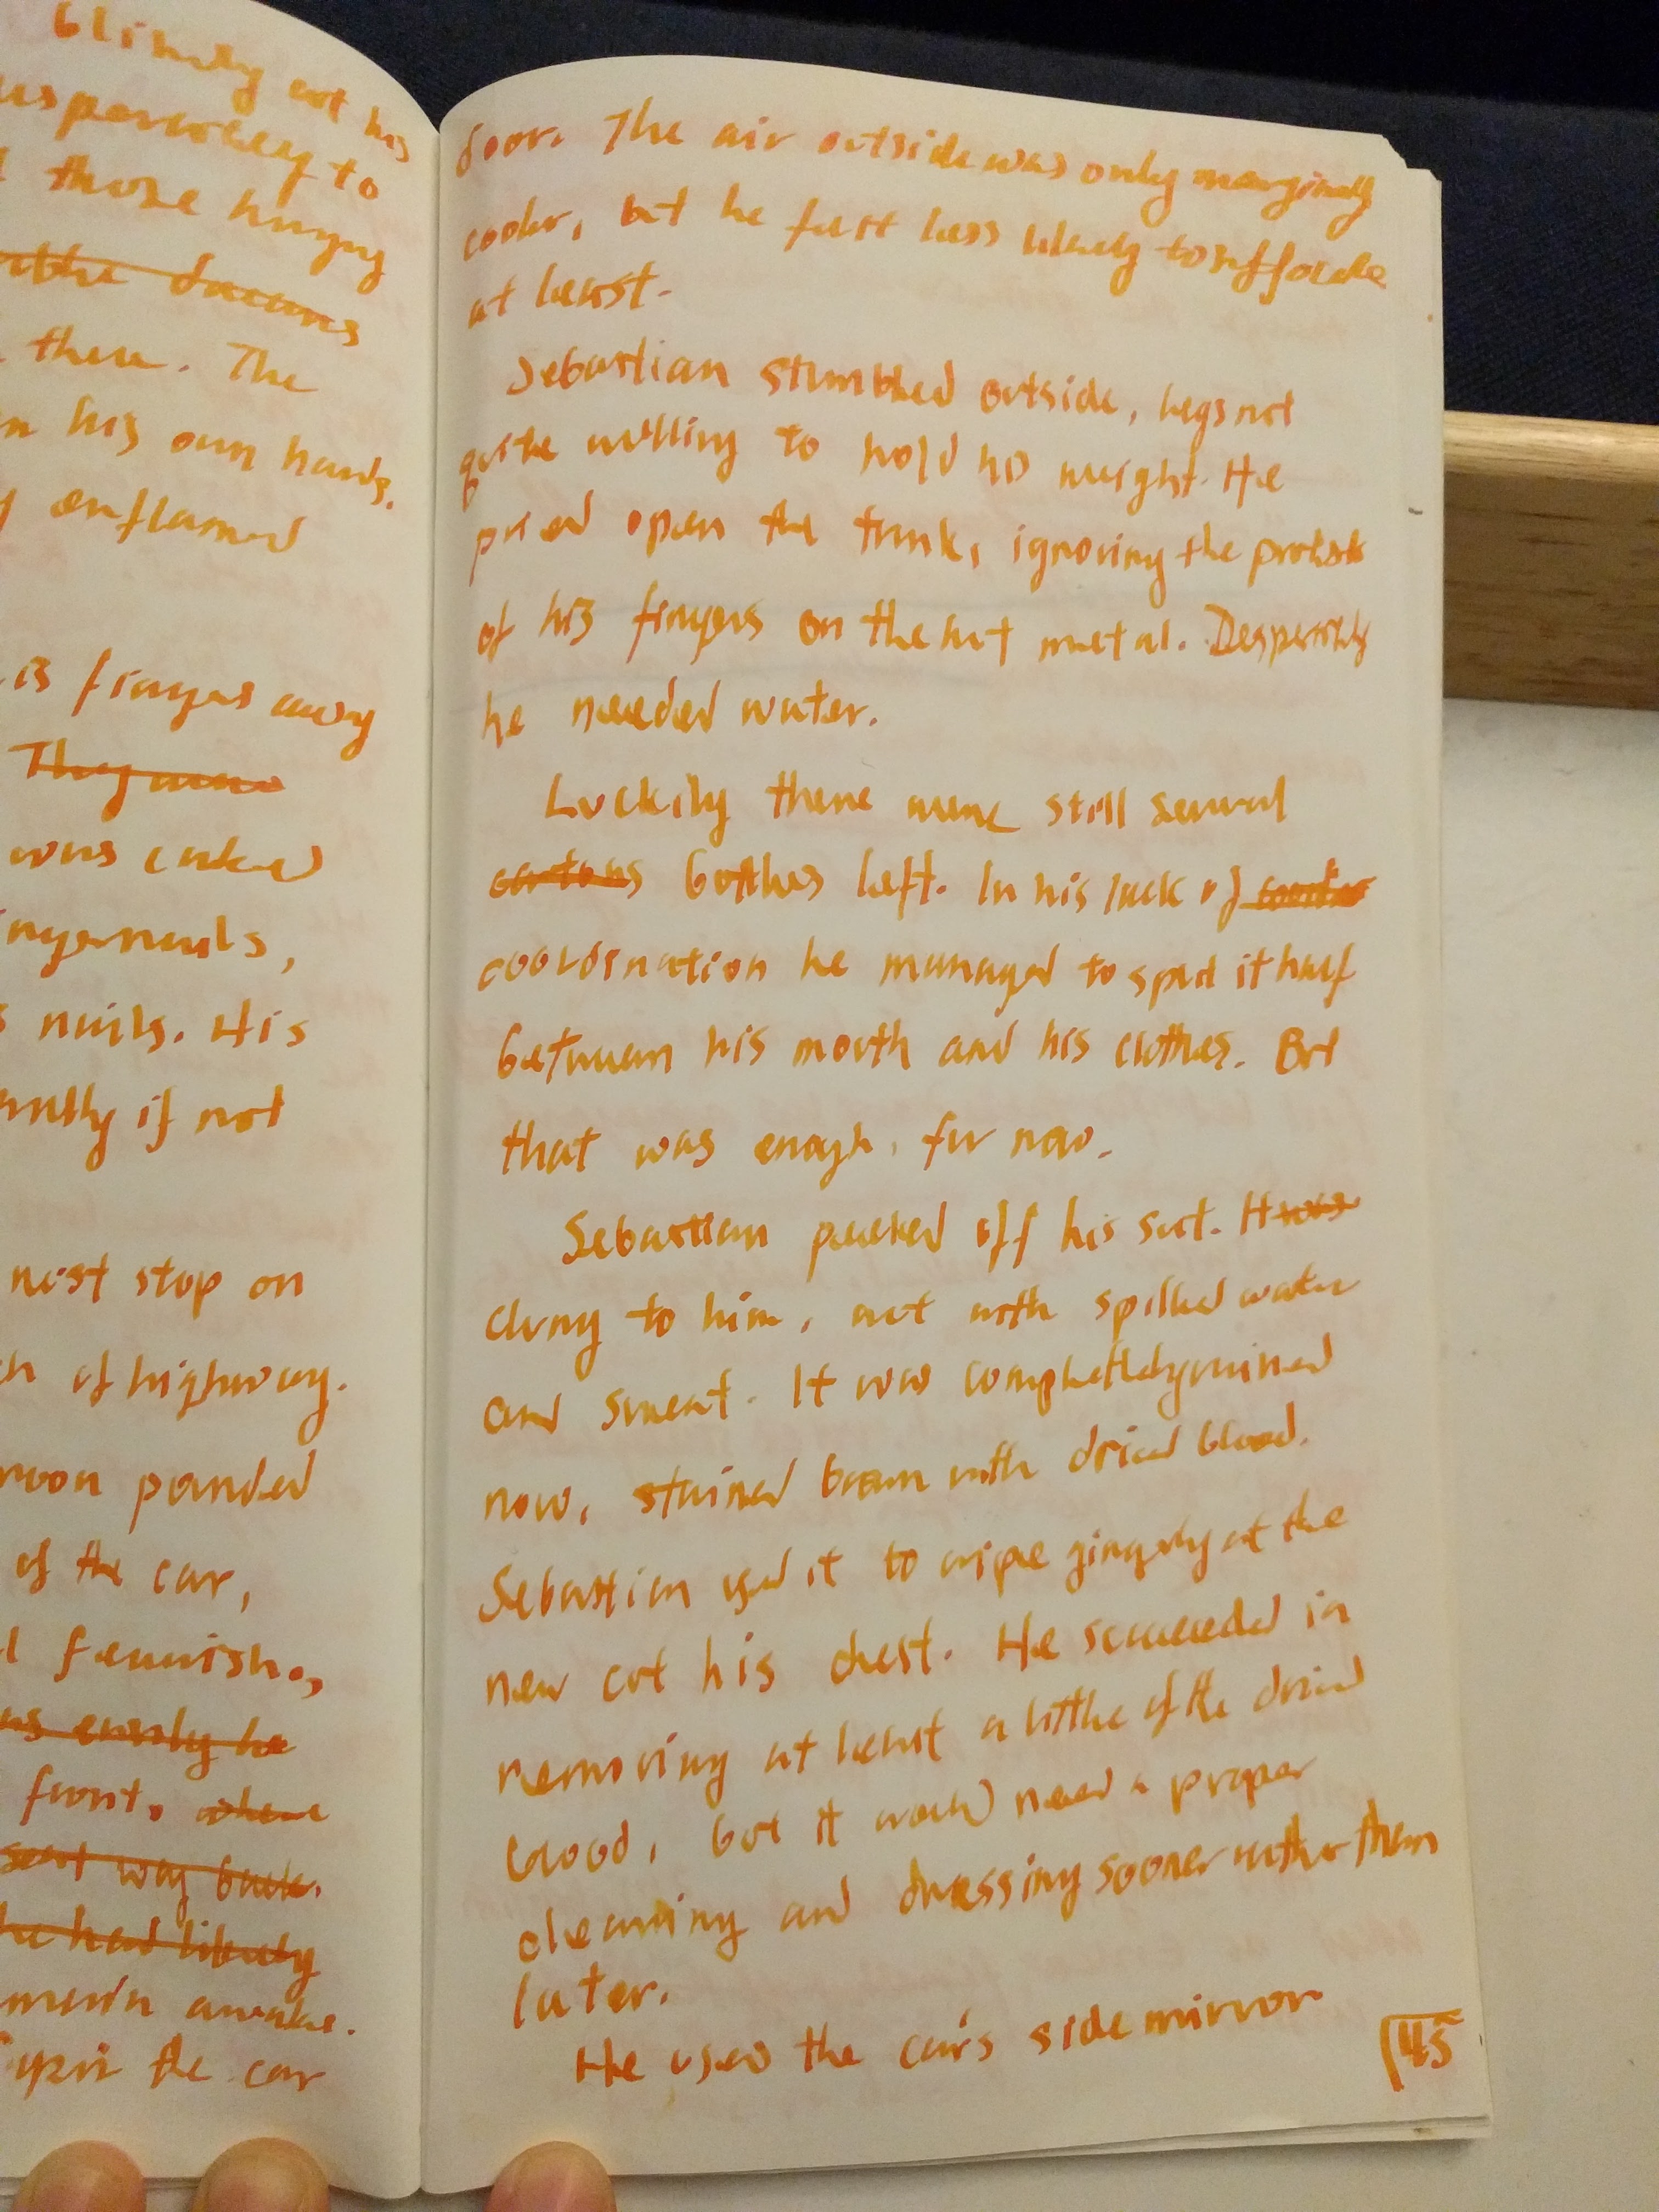 blindly at his
desperately to
those hungry
there. The
in his own hands.
enflamed
his fingers away
They were
was caked
fingernails,
nails. His
if not
next stop on
of highway.
pounded
of the car,
feverish.,
as easily he
front. where
seat way back.
he had likely
awake.
the car
door. The air outside was only marginally
cooler, but he felt less likely to suffocate
at least.
Sebastian stumbled outside, legs not
quite willing to hold his weight. He
pried open the trunk, ignoring the protests
of his fingers on the hot metal. Desperately
he needed water.
Luckily there were still several
cartons bottles left. In his lack of
coordination he managed to spill it half
between his mouth and his clothes. But
that was enough, for now.
Sebastian peeled off his suit. It was
clung to him, wet with spilled water
and sweat. It was completely ruined
now, stained brown with dried blood.
Sebastian used it to wipe gingerly at the
new cut his chest. He succeeded in
removing at least a little of the dried
blood, but it would need a proper
cleaning and dressing sooner rather than
later.
He used the car's side mirror
45